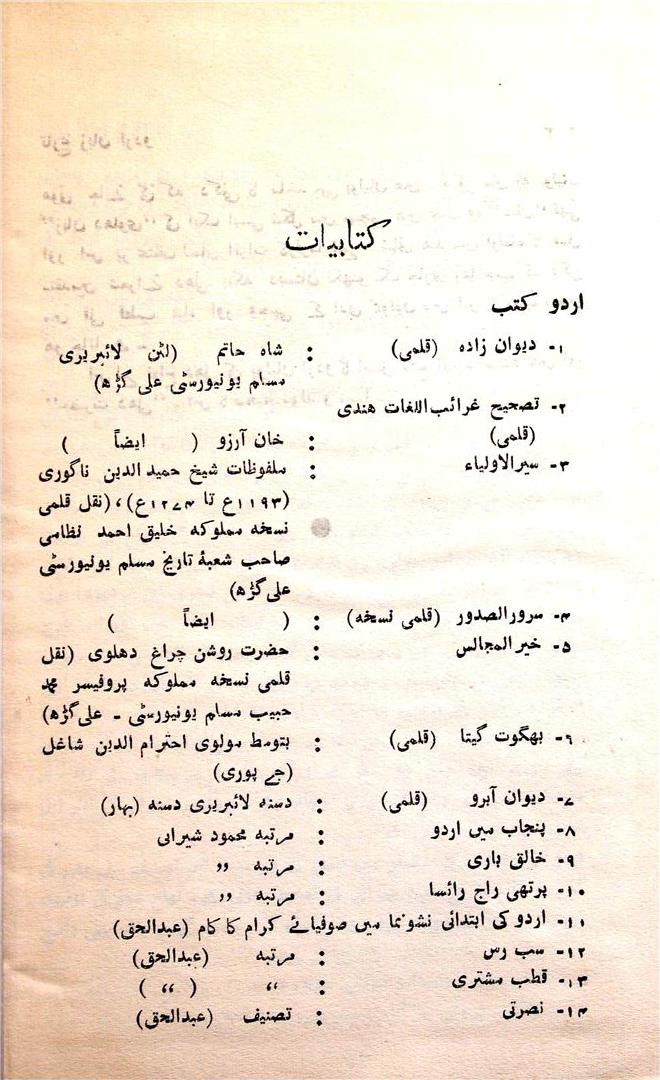 کتابیات
اردو کتب
۱۔ دیوان زادہ (قلمی) : شاہ حاتم (لٹن لائبریری
مسلم یونیورسٹی علی گڑھ)
۲۔ تصحیح غرائب اللغات ہندی
(قلمی) : خان آرزو ( ایضاً )
۳۔ سیرالاولیاء : ملفوظات شیخ حمید الدین ناگوری
(۱۱۹۳ع تا ۱۲۷۴ع)، (نقل قلمی
نسخہ مملوکہ خلیق احمد نظامی
صاحب شعبۂ تاریخ مسلم یونیورسٹی
علی گڑھ)
۴۔ سرورالصدور (قلمی نسخہ) : ( ایضاً )
۵۔ خیرالمجالس : حضرت روشن چراغ دھلوی (نقل
قلمی نسخہ مملوکہ پروفیسر محمد
حبیب مسلم یونیورسٹی ۔ علی گڑھ)
۶۔ بھگوت گیتا (قلمی) : بتوسط مولوی احترام الدین شاغل
(جے پوری)
۷۔ دیوان آبرو (قلمی) : دسنہ لائبریری دسنہ (بہار)
۸۔ پنجاب میں اردو : مرتبہ محمود شیرانی
۹۔ خالق باری : مرتبہ ,,
۱۰۔ پرتھی راج رائسا : مرتبہ ,,
۱۱۔ اردو کی ابتدائی نشو نما میں صوفیائے کرام کا کام (عبدالحق)
۱۲۔ سب رس : مرتبہ (عبدالحق)
۱۳۔ قطب مشتری : ,, ( ,, )
۱۴۔ نصرتی : تصنیف (عبدالحق)